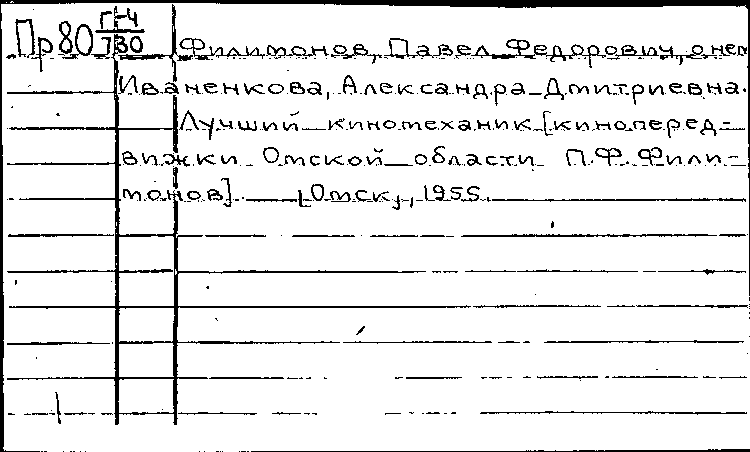 Пр80 Г-4/730
Филимонов, Павел Федорович, о нем
Иваненкова, Александра Дмитриевна.
Лучший киномеханик [киноперед-
вижки Омской области П.Ф. Фили-
монов]. [Омск], 1955.